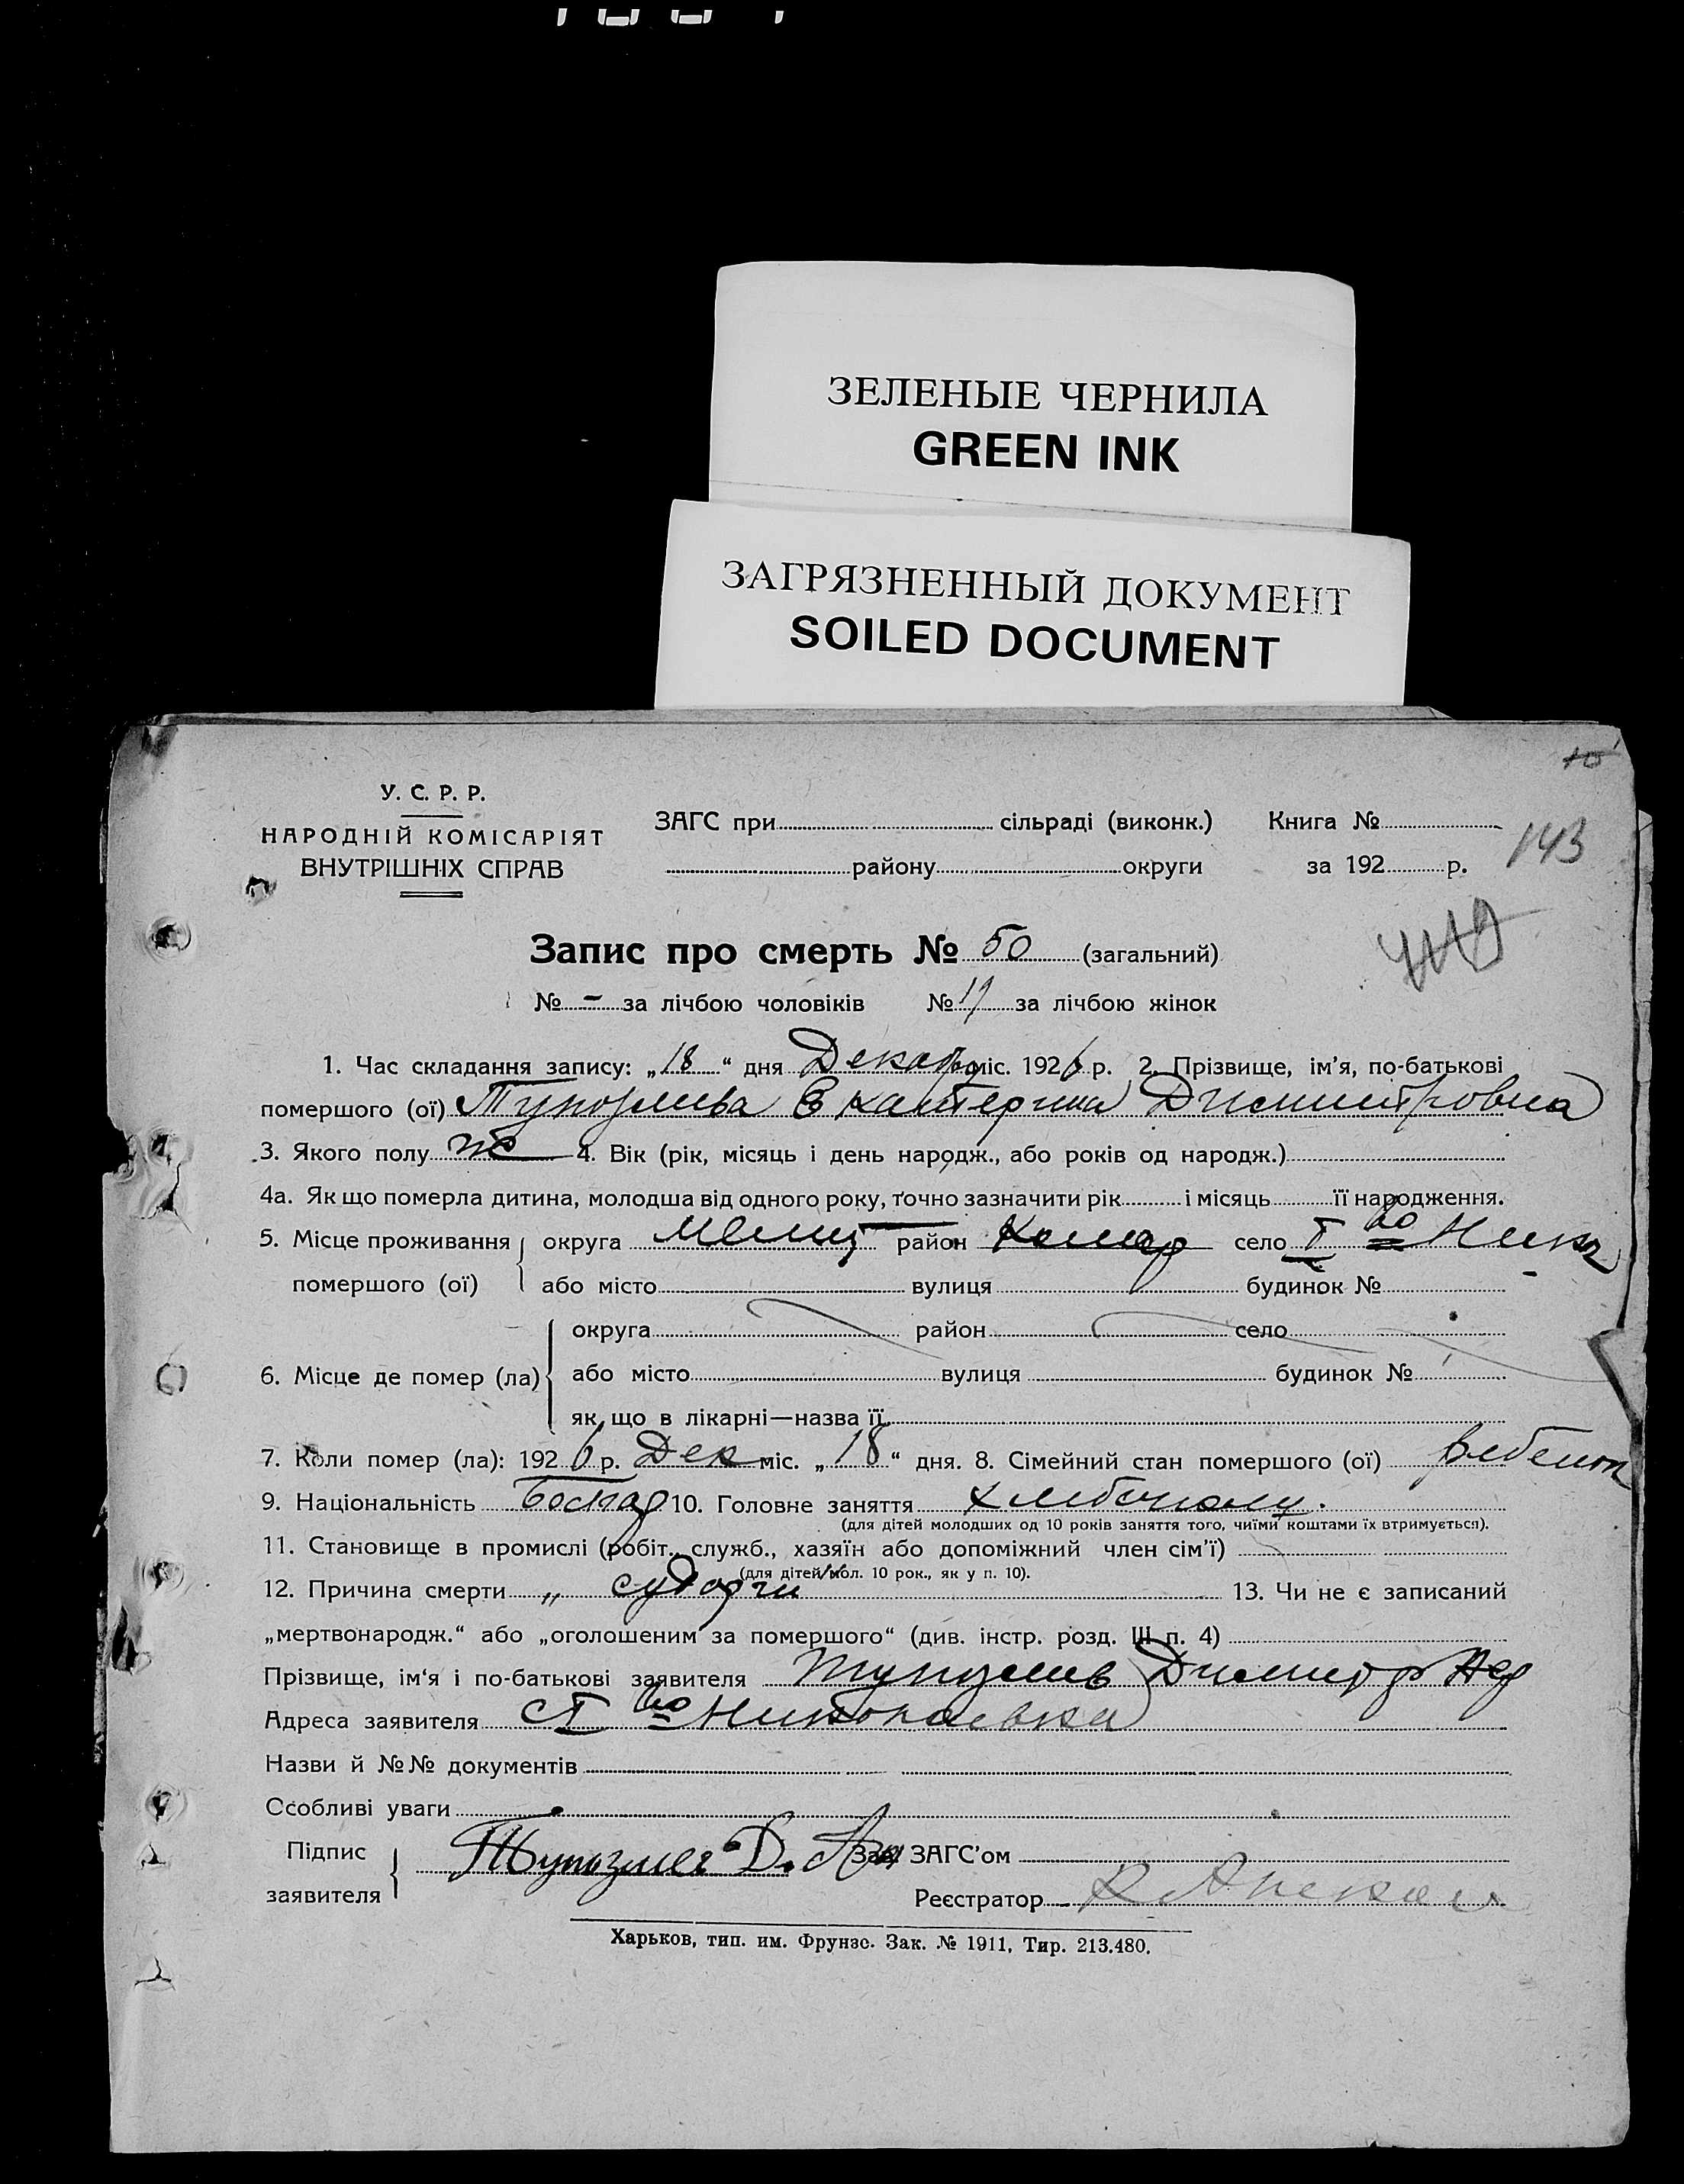 ЗЕЛЕНЫЕ ЧЕРНИЛА
GREEN INK
ЗАГРЯЗНЕННЫЙ ДОКУМЕНТ
SOILED DOCUMENT
У. С. Р. Р.
НАРОДНІЙ КОМІСАРІЯТ
ВНУТРІШНІХ СПРАВ
ЗАГС при сільраді (виконк.) Книга №
району округи за 192 р. 143
Запис про смерть № 50 (загальний)
№ - за лічбою чоловіків № 19 за лічбою жінок
1. Час складання запису: „18“ дня Декабр міс. 1926 р. 2. Прізвище, ім’я, по-батькові
помершого (ої) Екатерина Димитровна
3. Якого полу ж 4. Вік (рік, місяць і день народж., або років од народж.)
4а. Як що померла дитина, молодша від одного року, точно зазначити рік і місяць її народження.
5. Місце проживання округа Мелит район село І во Ник
помершого (ої) або місто вулиця будинок №
округа район село
6. Місце де помер (ла) або місто вулиця будинок №
як що в лікарні—назва її
7. Коли помер (ла): 1926 р. Дек міс. „18“ дня. 8. Сімейний стан помершого (ої) ребенок
9. Національність Болгар 10. Головне заняття
(для дітей молодших од 10 років заняття того, чиїми коштами їх втримується).
11. Становище в промислі (робіт., служб., хазяїн або допоміжний член сім’ї)
(для дітей мол. 10 рок., як у п. 10).
12. Причина смерти „ судорги “ 13. Чи не є записаний
„мертвонародж.“ або „оголошеним за помершого“ (див. інстр. розд. III п. 4)
Прізвище, ім‘я і по-батькові заявителя Димитр
Адреса заявителя с І во Николаевка
Назви й №№ документів
Ссобливі уваги
Підпис
заявителя Д. Зав. ЗАГС’ом
Реєстратор
Харьков, тип. им. Фрунзе. Зак. № 1911, Тир. 213.480.